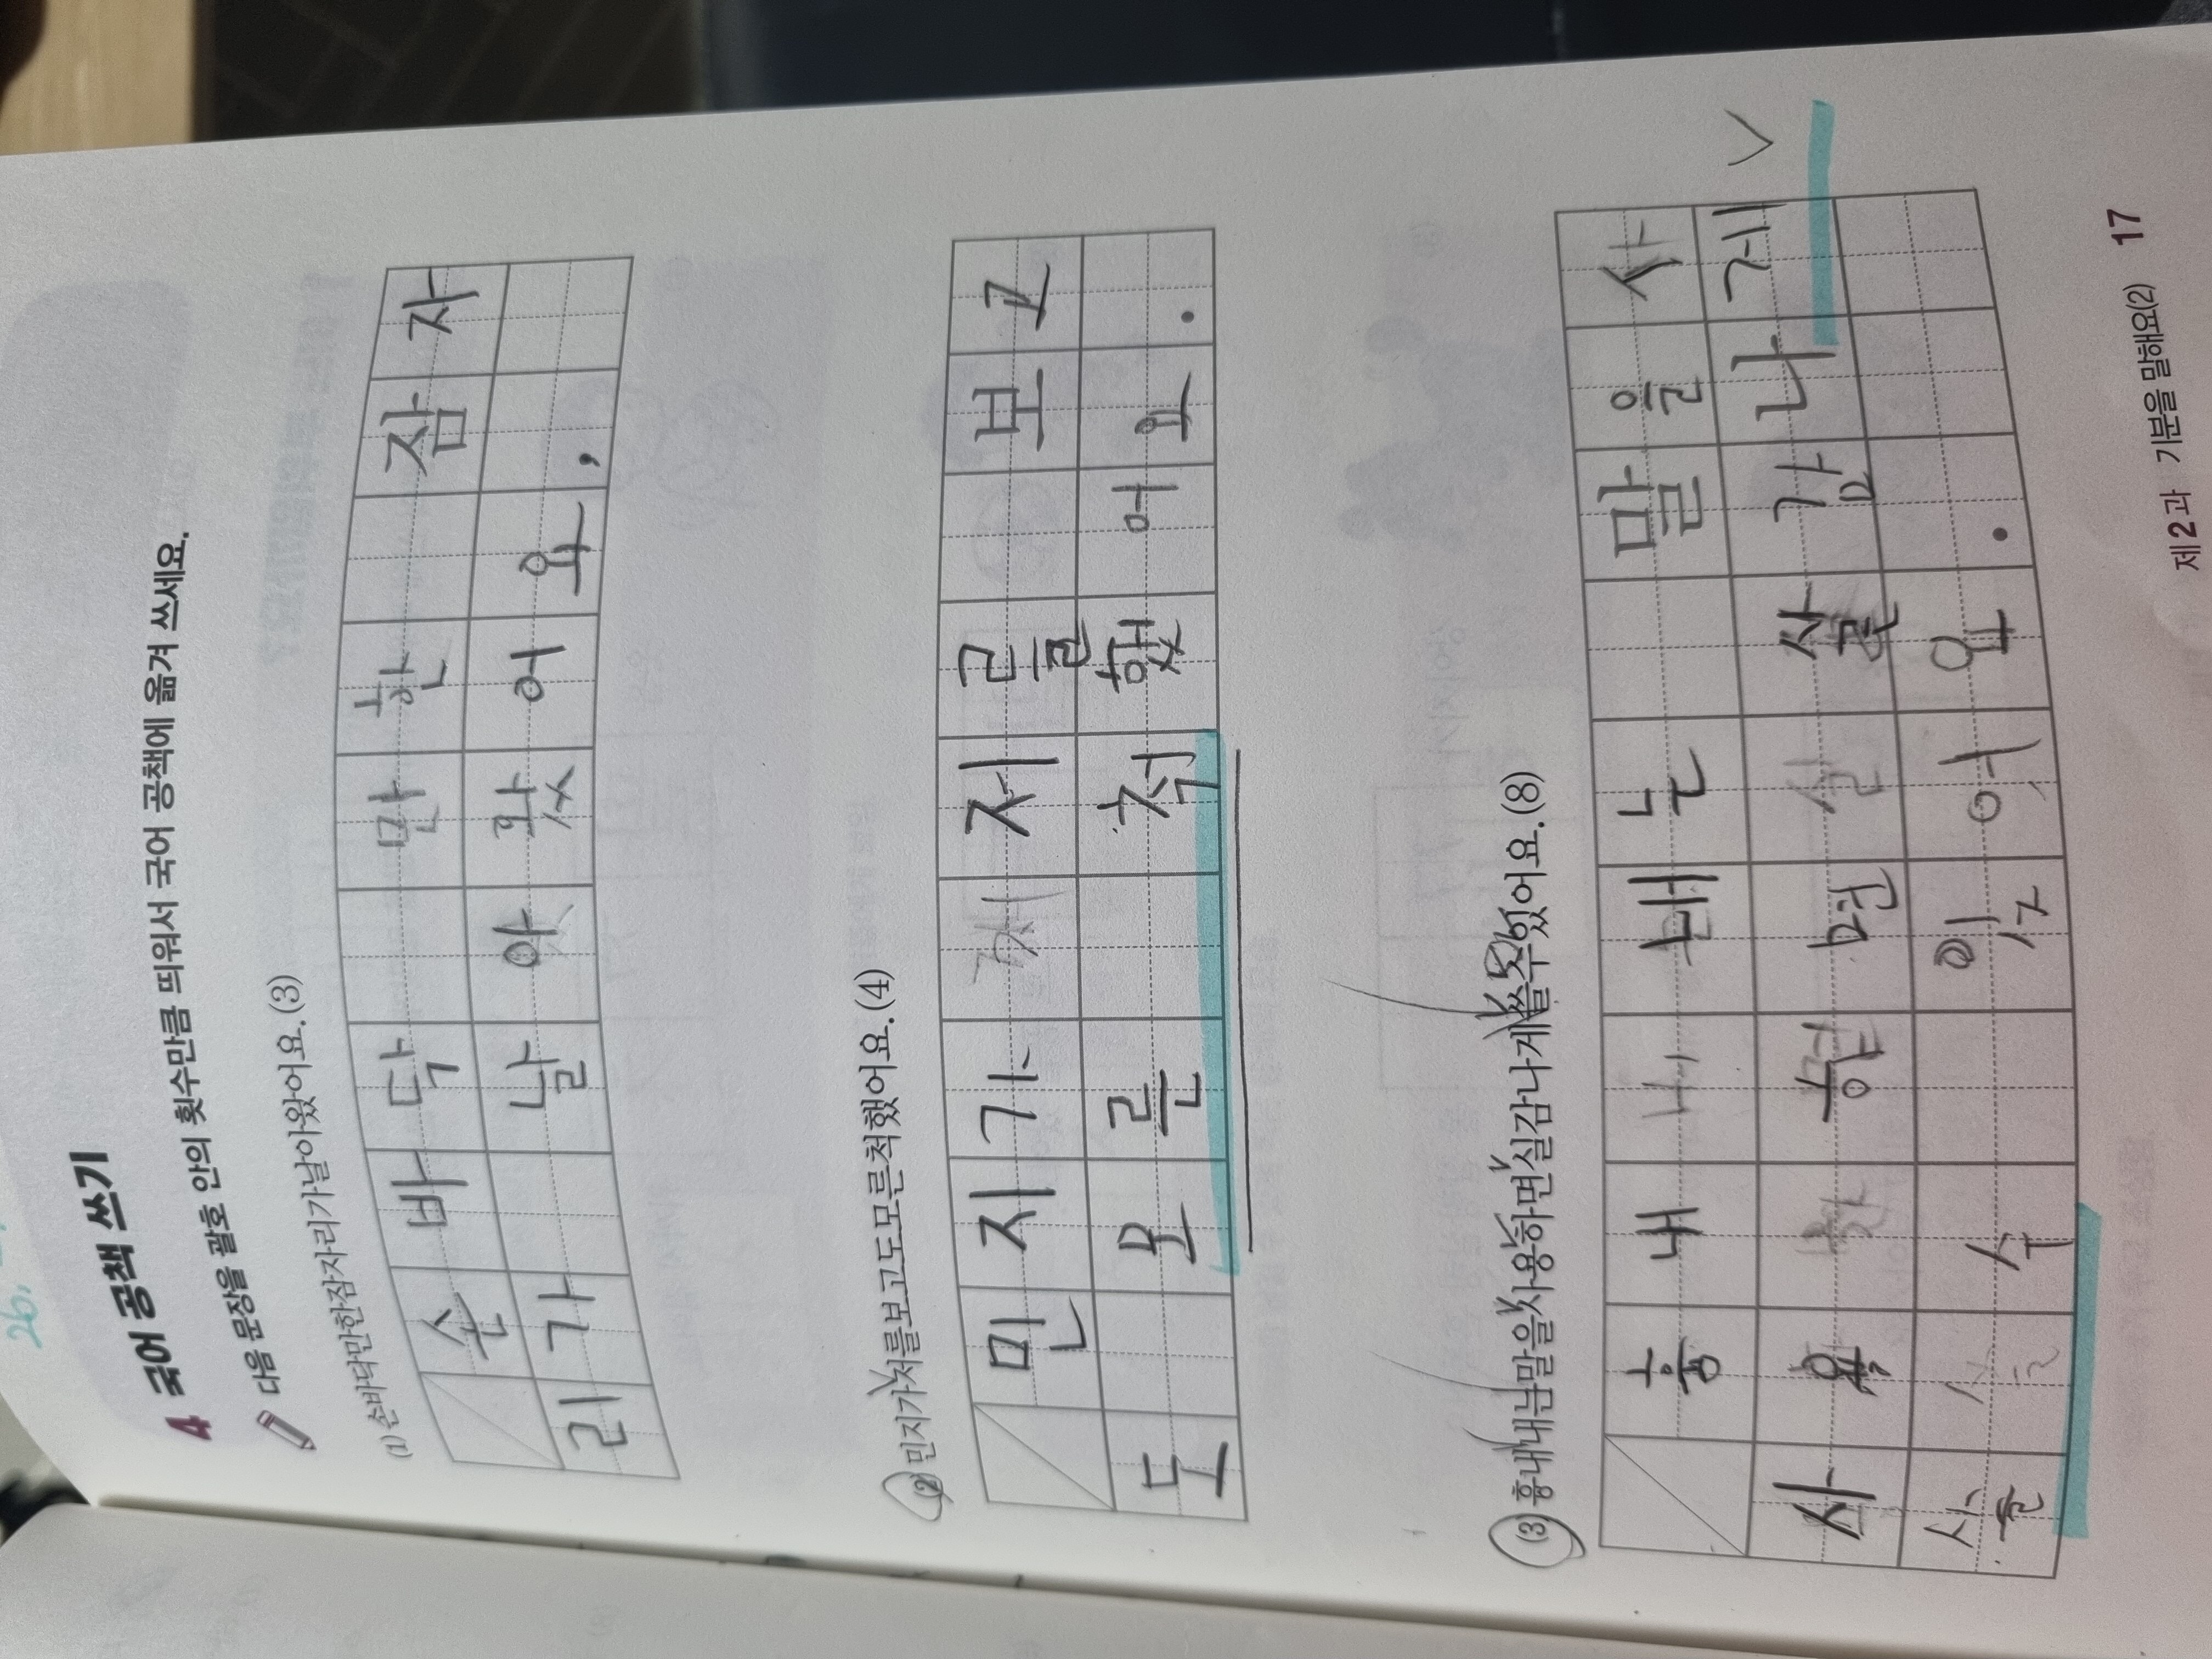 26.
4 국어 공책 쓰기
다음 문장을 괄호 안의 횟수만큼 띄워서 국어 공책에 옮겨 쓰세요.
(1) 손바닥만한잠자리가날아왔어요.(3)
손바닥 만한 잠자
리가 날아왔어요.
(2) 민지가저를보고도모른척했어요.(4)
민지가 저를 보고
도 모른 척했어요.
(3) 흉내내는말을사용하면실감나게쓸수있어요.(8)
흉내 내는 말을 사
용하면 실감나게
쓸 수 있어요.
제2과 기분을 말해요(2) 17